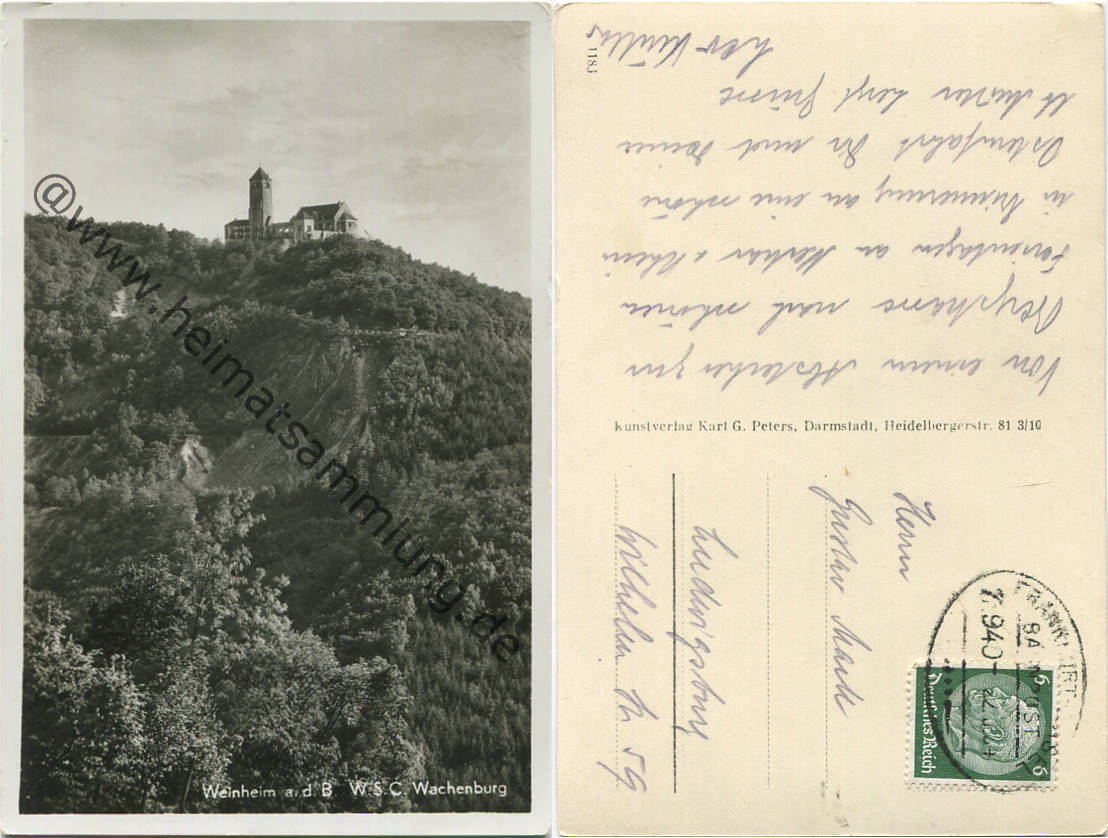 @www.heimatsammlung.de
Weinheim a.d.B. W.S.C. Wachenburg
1183
Von einem Abstecher zur
Bergstrasse nach schönen
Ferientagen an Neckar u Rhein
in Erinnerung an eine schöne
Osterfahrt Dir und Deiner
lb Mutter herzl Grüsse
Kunstverlag Karl G. Peters, Darmstadt, Heidelbergerstr. 81 3/10
Herrn
Gustav
Ludwigsburg
Wilhelm Str 59
BAHNPOST
Deutsches Reich
6 6